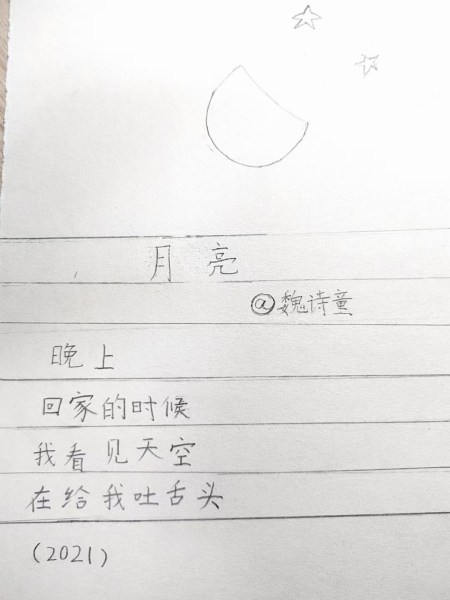 月亮
@魏诗童
晚上
回家的时候
我看见天空
在给我吐舌头
(2021)